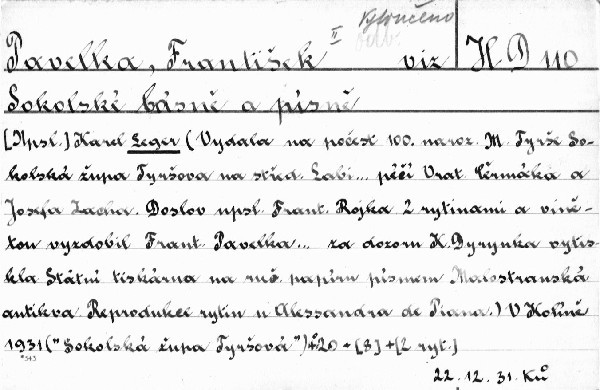 Vyloučeno
Pavelka, František II viz H D 110
Sokolské básně a písně
[Npsl.] Karel Leger (Vydala na počest 100. naroz. M. Tyrše So-
kolská župa Tyršova na střed. Labi... péčí Vrat. Čermáka a
Josefa Zacha. Doslov npsl. Frant. Rojka 2 rytinami a vině-
tou vyzdobil Frant. Pavelka... za dozoru K. Dyrynka vytis-
kla Státní tiskárna na ruč. papíru písmem Malostranská
antikva Reprodukce rytin u Alessandra de Piana.) V Kolíně
1931 ("Sokolská župa Tyršova") 4° 20 - [8] + [2 ryt.]
22. 12. 31. Ků